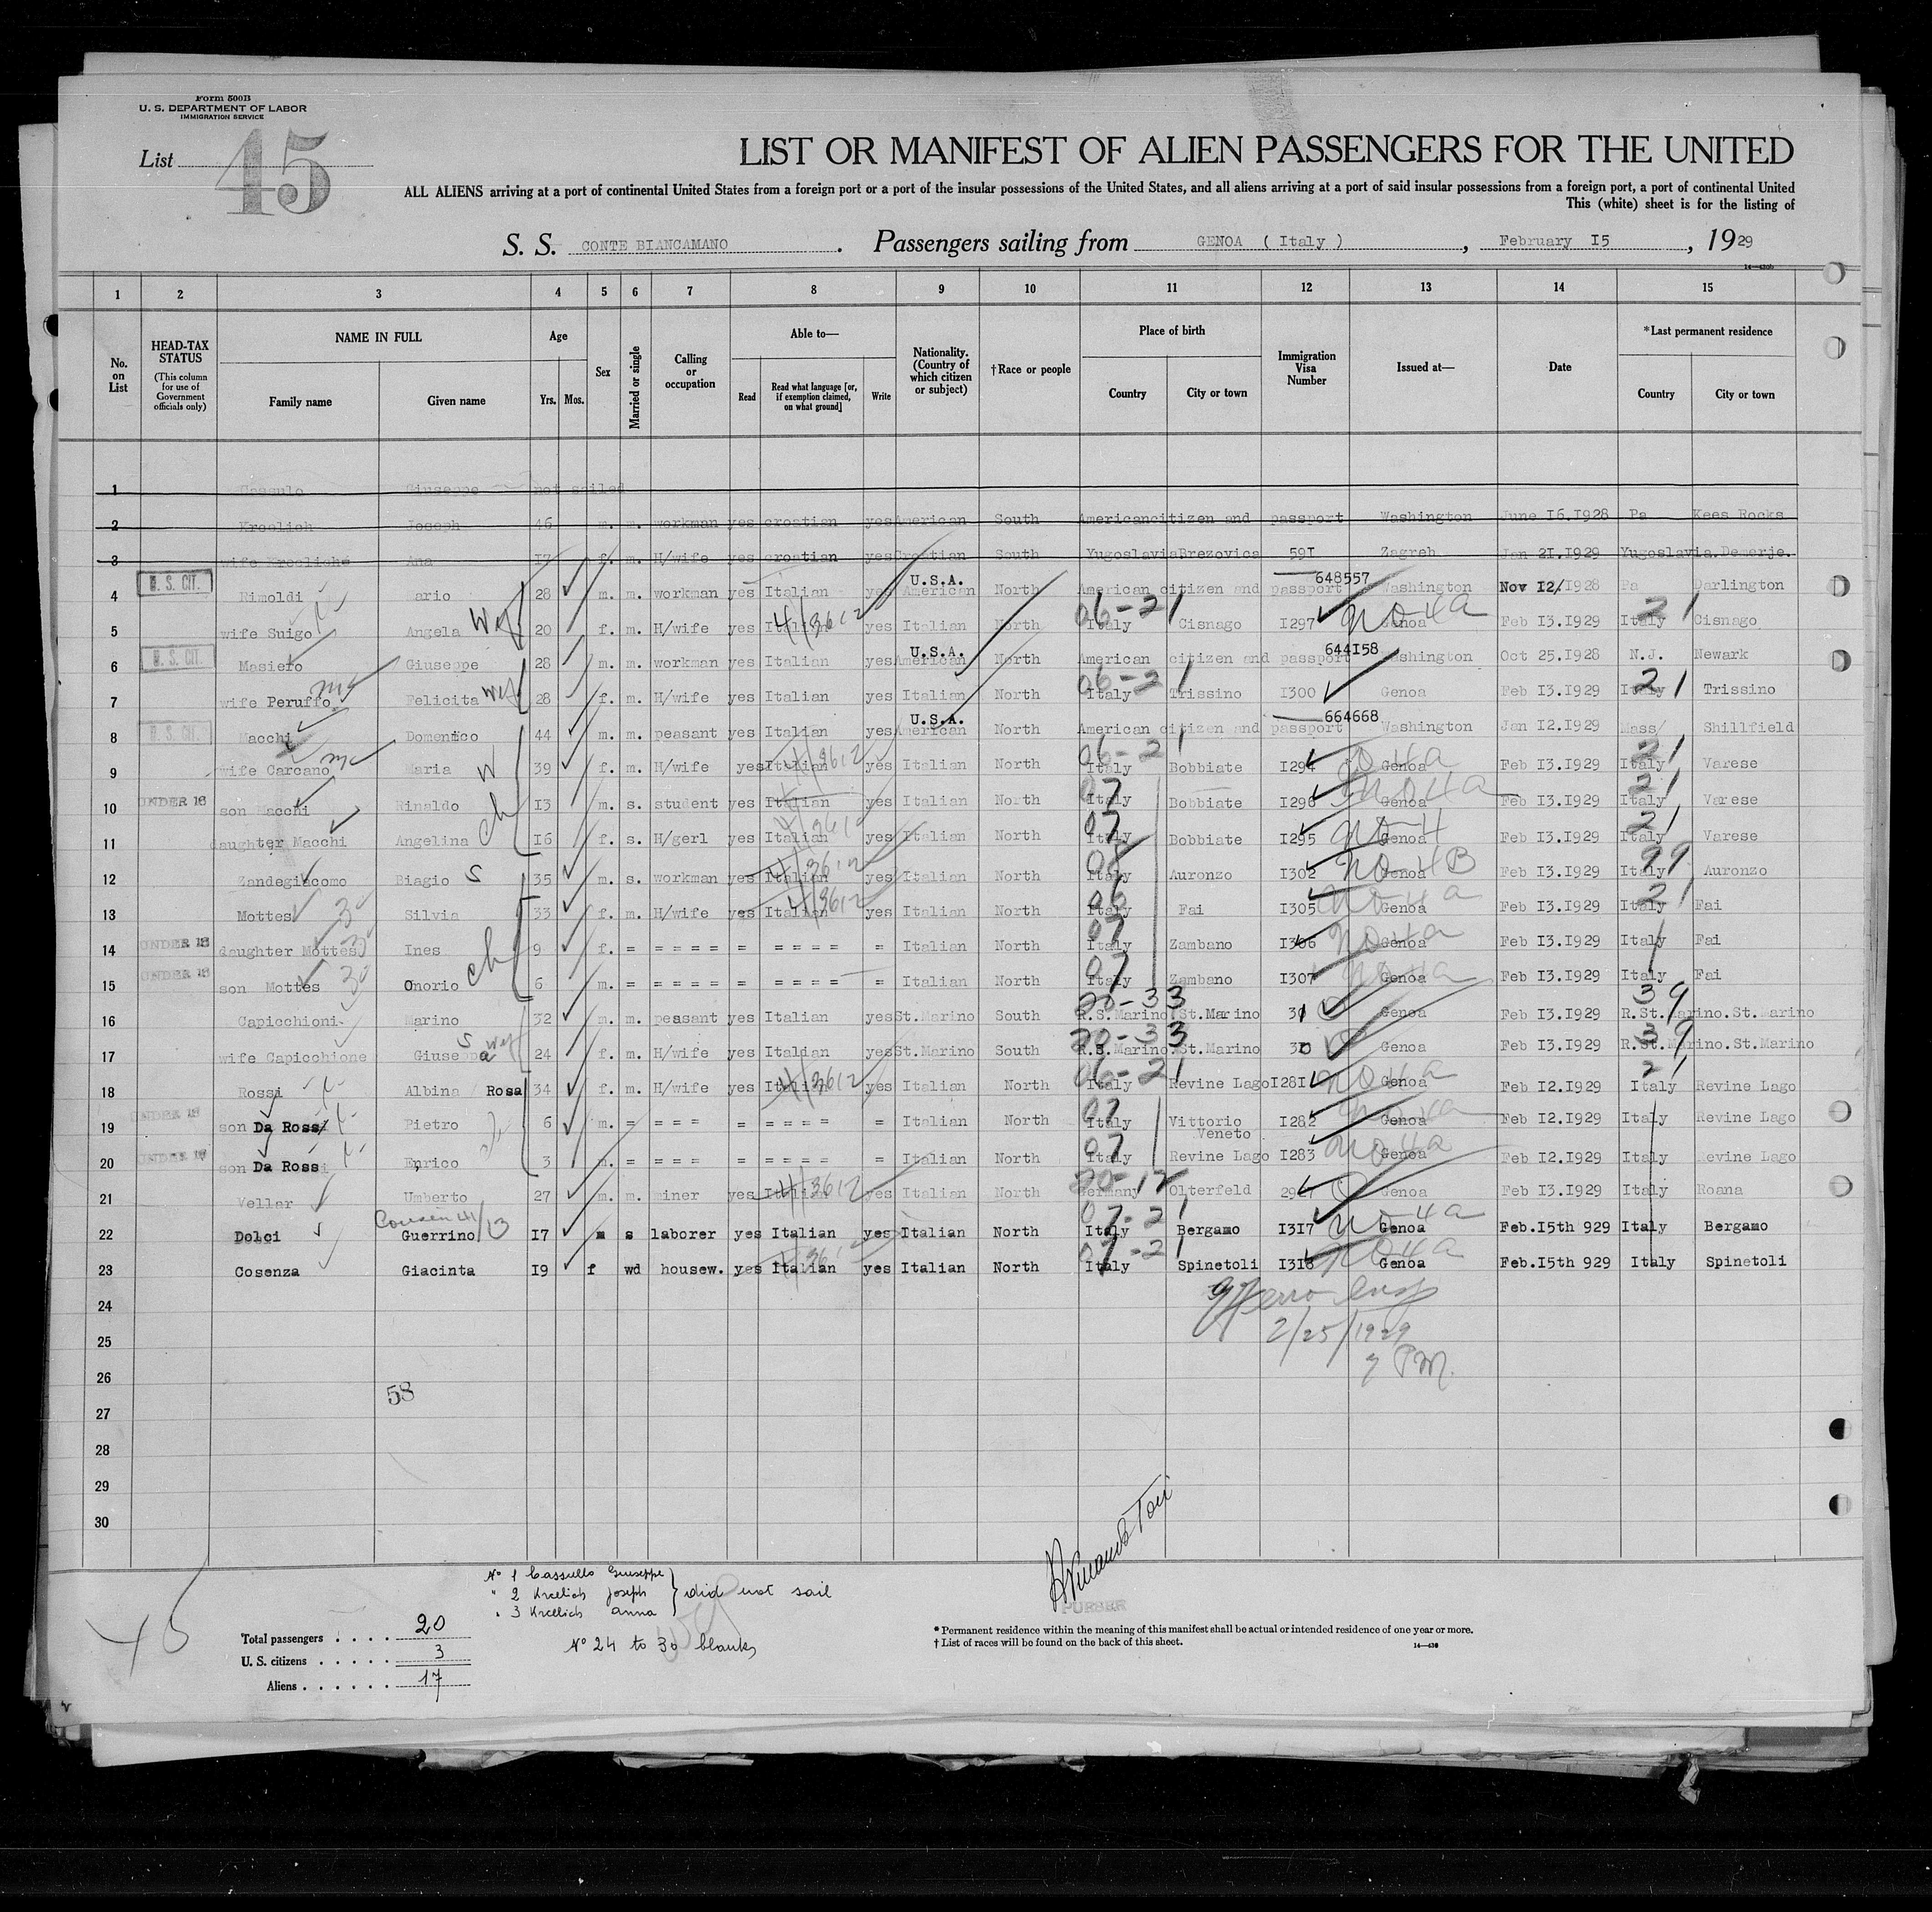 Form 500B
U. S. DEPARTMENT OF LABOR
IMMIGRATION SERVICE
List 45
LIST OR MANIFEST OF ALIEN PASSENGERS FOR THE UNITED
ALL ALIENS arriving at a port of continental United States from a foreign port or a port of the insular possessions of the United States, and all aliens arriving at a port of said insular possessions from a foreign port, a port of continental United
This (white) sheet is for the listing of
S. S. CONTE BIANCAMANO. Passengers sailing from GENOA ( Italy ), February 15, 1929
1 2 3 4 5 6 7 8 9 10 11 12 13 14 15
No. on List
HEAD-TAX STATUS (This column for use of Government officials only)
NAME IN FULL Family name Given name
Age Yrs. Mos.
Sex
Married or single
Calling or occupation
Able to— Read Read what language [or, if exemption claimed, on what ground] Write
Nationality. (Country of which citizen or subject)
†Race or people
Place of birth Country City or town
Immigration Visa Number
Issued at—
Date
*Last permanent residence Country City or town
1 Giuseppe not sailed
2 Joseph 46 m. m. workman yes croatian yes American South American citizen and passport Washington June 16.1928 Pa Kees Rocks
3 wife Ana 17 f. m. H/wife yes croatian yes Croatian South Yugoslavia Brezovica 591 Zagreb Jan 21.1929 Yugoslavia. Demerje.
4 U. S. CIT. Rimoldi ario 28 m. m. workman yes Italian yes American U.S.A. North American citizen and passport 648557 Washington Nov 12/1928 Pa Darlington
5 wife Suigo Angela Wf 20 f. m. H/wife yes Italian 4/3612 yes Italian North 06-21 Italy Cisnago 1297 no4a Genoa Feb 13.1929 Italy 21 Cisnago
6 U. S. CIT. Masiero Giuseppe 28 m. m. workman yes Italian yes American U.S.A. North American citizen and passport 644158 Washington Oct 25.1928 N.J. Newark
7 wife Peruffo Felicita Wf 28 f. m. H/wife yes Italian yes Italian North 06-21 Italy Trissino 1300 Genoa Feb 13.1929 Italy 21 Trissino
8 U. S. CIT. Macchi Domenico 44 m. m. peasant yes Italian yes American U.S.A. North American citizen and passport 664668 Washington Jan 12.1929 Mass Shillfield
9 wife Carcano Maria W 39 f. m. H/wife yes Italian 4/3612 yes Italian North 06-21 Italy Bobbiate 1294 Genoa Feb 13.1929 Italy 21 Varese
10 UNDER 16 son Macchi Rinaldo 13 m. s. student yes Italian yes Italian North 07 Italy Bobbiate 1296 no4a Genoa Feb 13.1929 Italy 21 Varese
11 daughter Macchi Angelina ch 16 f. s. H/gerl yes Italian yes Italian North 07 Italy Bobbiate 1295 no4 Genoa Feb 13.1929 Italy 21 Varese
12 Zandegiacomo Biagio S 35 m. s. workman yes Italian 4/3612 yes Italian North 06 Italy Auronzo 1302 no4B Genoa Feb 13.1929 Italy 99 Auronzo
13 Mottes Silvia 33 f. m. H/wife yes Italian 4/3612 yes Italian North 06 Italy Fai 1305 no4a Genoa Feb 13.1929 Italy 21 Fai
14 UNDER 16 daughter Mottes Ines 9 f. = = = = = = = = = = = = Italian North 07 Italy Zambano 1306 no4a Genoa Feb 13.1929 Italy Fai
15 UNDER 16 son Mottes Onorio ch 6 m. = = = = = = = = = = = = Italian North 07 Italy Zambano 1307 no4a Genoa Feb 13.1929 Italy Fai
16 Capicchioni Marino 32 m. m. peasant yes Italian yes St.Marino South 20-33 R.S.Marino. St.Marino 31 Genoa Feb 13.1929 39 R.St.Marino. St.Marino
17 wife Capicchione Giuseppa Wf 24 f. m. H/wife yes Italian yes St.Marino South 20-33 R.S.Marino. St.Marino 30 Genoa Feb 13.1929 39 R.St.Marino. St.Marino
18 Rossi Albina Rosa 34 f. m. H/wife yes Italian 4/3612 yes Italian North 06-21 Italy Revine Lago 1281 no4a Genoa Feb 12.1929 Italy 21 Revine Lago
19 UNDER 16 son Da Rossi Pietro 6 m. = = = = = = = = = Italian North 07 Italy Vittorio Veneto 1282 no4a Genoa Feb 12.1929 Italy Revine Lago
20 UNDER 16 son Da Rossi Enrico 3 m. = = = = = = = = = = Italian North 07 Italy Revine Lago 1283 no4a Genoa Feb 12.1929 Italy Revine Lago
21 Vellar Umberto 27 m. m. miner yes Italian 4/3612 yes Italian North 20-12 Germany Olterfeld Genoa Feb 13.1929 Italy Roana
22 Dolci Cousin Guerrino 17 m s laborer yes Italian yes Italian North 07-21 Italy Bergamo 1317 no4a Genoa Feb.15th 929 Italy Bergamo
23 Cosenza Giacinta 19 f wd housew. yes Italian yes Italian North 07-21 Italy Spinetoli 1318 no4a Genoa Feb.15th 929 Italy Spinetoli
24
25 2/25/1929
26 7 PM.
58
27
28
29
30
No 1 Cassullo Giuseppe
" 2 Krcelich Joseph } did not sail
" 3 Krcelich Anna
No 24 to 30 blanks
Total passengers . . . . 20
U. S. citizens . . . . . 3
Aliens . . . . . . 17
PURSER
* Permanent residence within the meaning of this manifest shall be actual or intended residence of one year or more.
† List of races will be found on the back of this sheet.
14—430